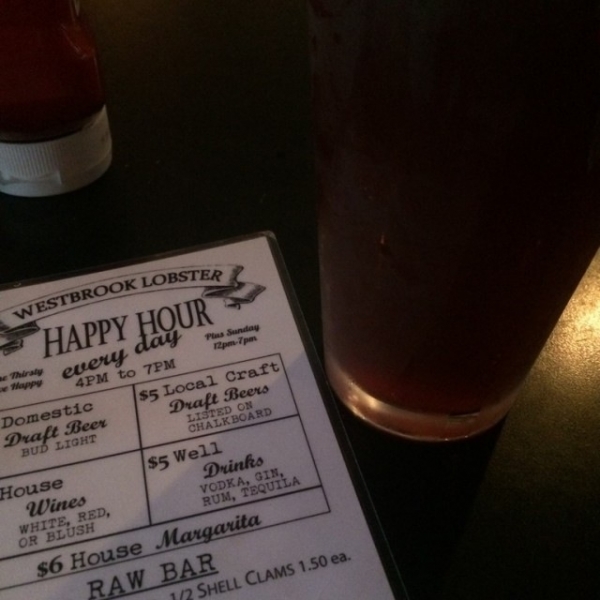 WESTBROOK LOBSTER
HAPPY HOUR
every day
Plus Sunday
12pm-7pm
Thirsty
Happy
4PM to 7PM
Domestic
Draft Beer
BUD LIGHT
$5 Local Craft
Draft Beers
LISTED ON
CHALKBOARD
House
Wines
WHITE, RED,
OR BLUSH
$5 Well
Drinks
VODKA, GIN,
RUM, TEQUILA
$6 House Margarita
RAW BAR
1/2 SHELL CLAMS 1.50 ea.